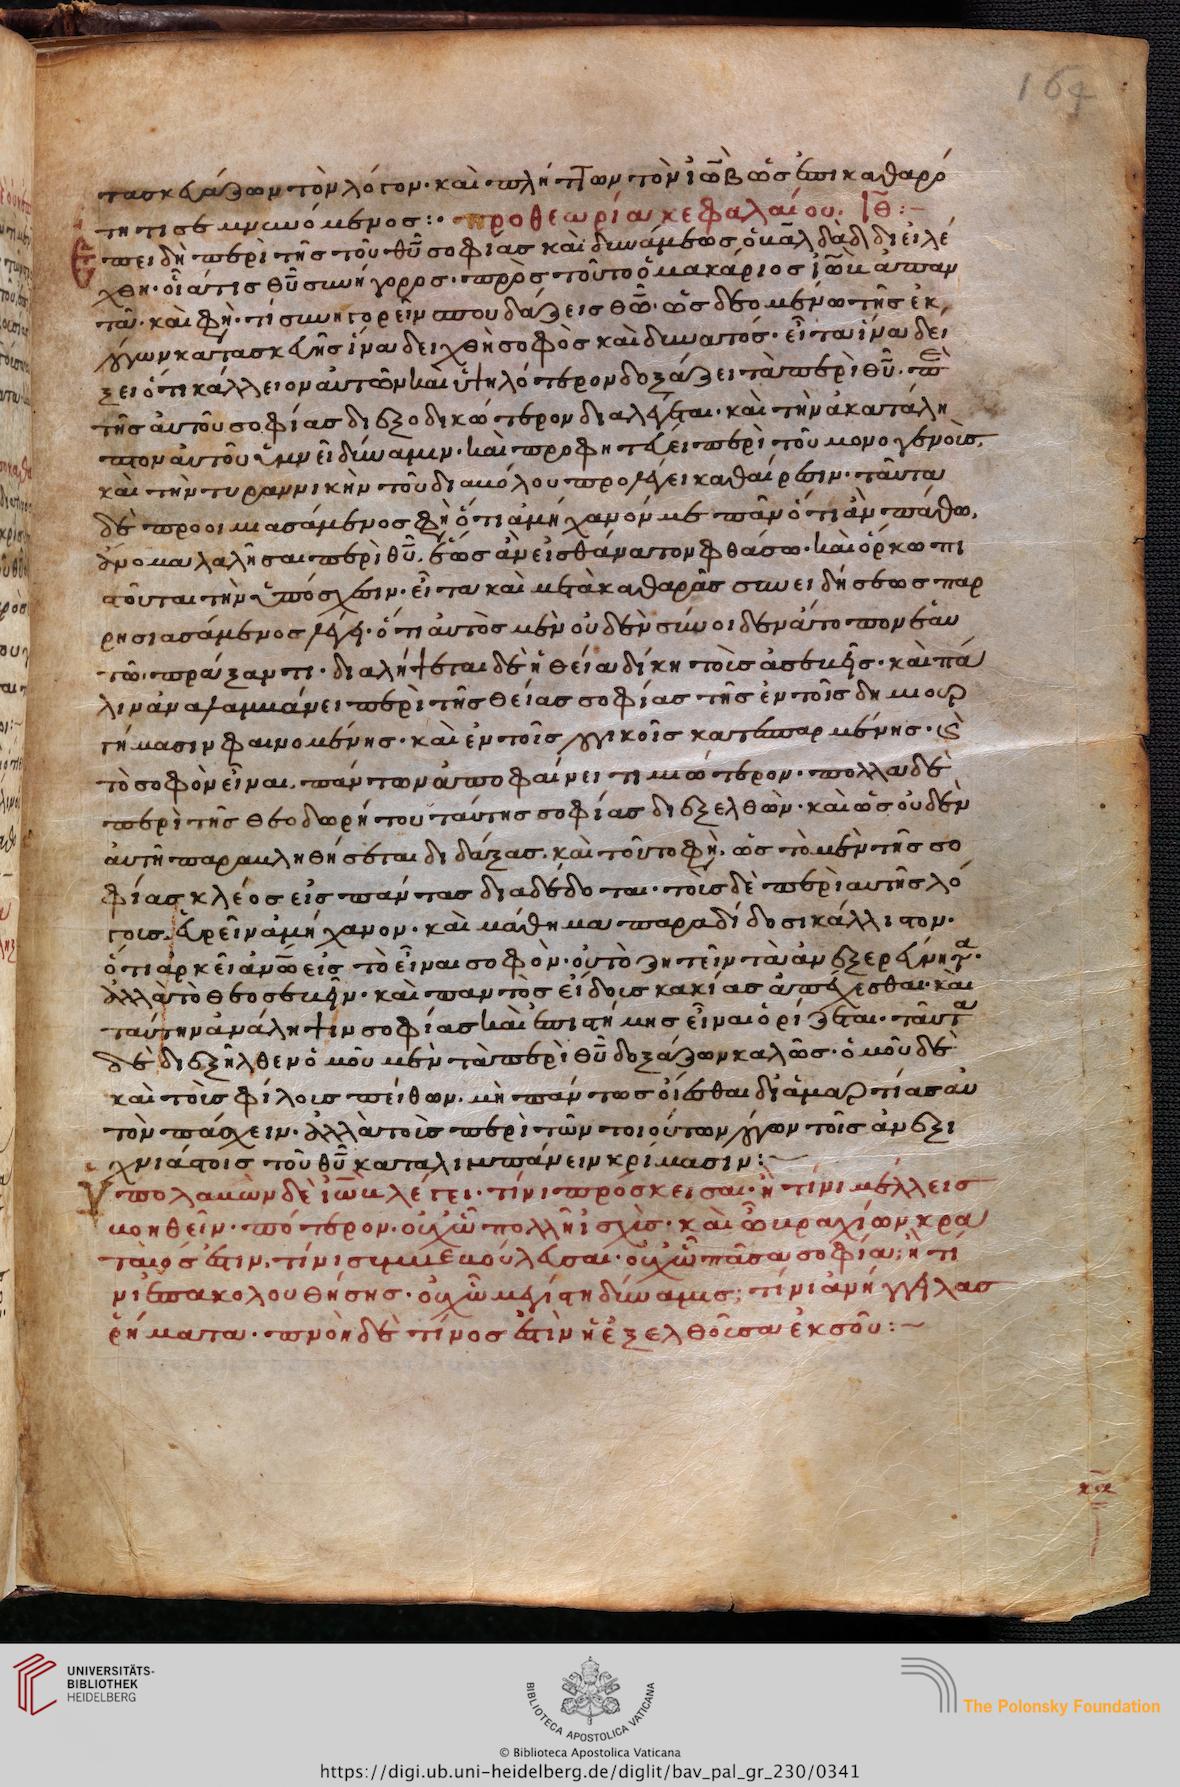 164
τασκευάζων τὸν λόγον· καὶ πλήττων τὸν ἰὼβ ὡς ἐπὶ καθαρό
τητι σεμνυνόμενος :· προθεωρία κεφαλαίου ιθ :–
Ἐπειδὴ περὶ τῆς τοῦ θῦ σοφίας καὶ δυνάμεως ὁ βαλδὰδ διειλέ
χθη· οἷά τις θῦ συνήγορος· πρὸς τοῦτο ὁ μακάριος ἰὼβ ἀπαν
τᾶ· καὶ φη· τί συνηγορεῖν σπουδάζεις θῶ· ὡς δεομένω τῆς ἐκ
λόγων κατασκευῆς ἵνα δειχθῆ σοφὸς καὶ δυνατός· εἶτα ἵνα δεί
ξει ὅτι κάλλειον αὐτῶν καὶ ὑψηλότερον δοξάζει τὰ περὶ θῦ·
τῆς αὐτοῦ σοφίας διεξοδικώτερον διαλέγεται· καὶ τὴν ἀκατάλη
πτον αὐτοῦ ὑμνεῖ δύναμιν· καὶ προφητεύει περὶ τοῦ μονογενοῦς·
καὶ τὴν τυραννικὴν τοῦ διαβόλου προλέγει καθαίρεσιν· ταῦτα
δὲ προοιμιασάμενος φη ὅτι ἀμήχανόν με πᾶν ὅτι ἂν πάθω,
μὴ λαλῆσαι περὶ θῦ· ἕως ἂν εἰς θάνατον φθάσω· καὶ ὅρκω πι
στοῦται τὴν ὑπόσχεσιν· εἶτα καὶ μετὰ καθαρᾶς συνειδήσεως παρ
ρησιασάμενος λέγει· ὅτι αὐτὸς μὲν οὐδὲν σύνοιδεν ἄτοπον ἑαυ
τῶ πράξαντι· διαλήψεται δὲ ἡ θεία δίκη τοὺς ἀσεβεῖς· καὶ πά
λιν ἀναλαμβάνει περὶ τῆς θείας σοφίας τῆς ἐν τοῖς δημιουρ
γήμασιν φαινομένης· καὶ ἐν τοῖς λογικοῖς κατεσπαρμένης· καὶ
τὸ σοφὸν εἶναι, πάντων ἀποφαίνει τιμιώτερον· πολλὰ δὲ
περὶ τῆς θεοδωρήτου ταύτης σοφίας διεξελθὼν· καὶ ὡς οὐδὲν
αὐτῆ παραβληθήσεται διδάξας· καὶ τοῦτο φη· ὡς τὸ μὲν τῆς σο
φίας κλέος εἰς πάντας διαδέδοται· τοὺς δὲ περὶ αὐτῆς λό
γους εὑρεῖν ἀμήχανον· καὶ μάθημα παραδίδωσι κάλλιστον·
ὅτι ἀρκεῖ ἀνῶ εἰς τὸ εἶναι σοφὸν· οὐ τὸ ζητεῖν τὰ ἀνεξερεύνητα·
ἀλλὰ τὸ θεοσεβεῖν· καὶ παντὸς εἴδους κακίας ἀπέχεσθαι· καὶ
ταύτην ἀνάληψιν σοφίας καὶ ἐπιστήμης εἶναι ὁρίζεται· ταῦτα
δὲ διεξῆλθεν ὁμοῦ μὲν τὰ περὶ θῦ δοξάζων καλῶς· ὁμοῦ δὲ
καὶ τοὺς φίλους πείθων· μὴ πάντως οἴεσθαι δι' ἁμαρτίας αὐ
τὸν πάσχειν· ἀλλὰ τοὺς περὶ τῶν τοιούτων λόγων τοῖς ἀνεξι
χνιάστοις τοῦ θῦ καταλιμπάνειν κρίμασιν :–
Ὑπολαβὼν δὲ ἰὼβ λέγει· τίνι πρόσκεισαι· ἢ τίνι μέλλεις
βοηθεῖν· πότερον· οὐχ ὧ πολλὴ ἰσχὺς· καὶ ὧ βραχίων κρα
ταιός ἐστιν, τίνι συμβεβούλευσαι· οὐχ ὧ πᾶσα σοφία; ἢ τί
νι ἐπακολουθήσης· οὐχ ὧ μεγίστη δύναμις; τίνι ἀνήγγειλας
ῥήματα· πνοὴ δὲ τίνος ἐστὶν ἡ ἐξελθοῦσα ἐκ σοῦ :–
UNIVERSITÄTS-
BIBLIOTHEK
HEIDELBERG
BIBLIOTECA APOSTOLICA VATICANA
© Biblioteca Apostolica Vaticana
The Polonsky Foundation
https://digi.ub.uni-heidelberg.de/diglit/bav_pal_gr_230/0341